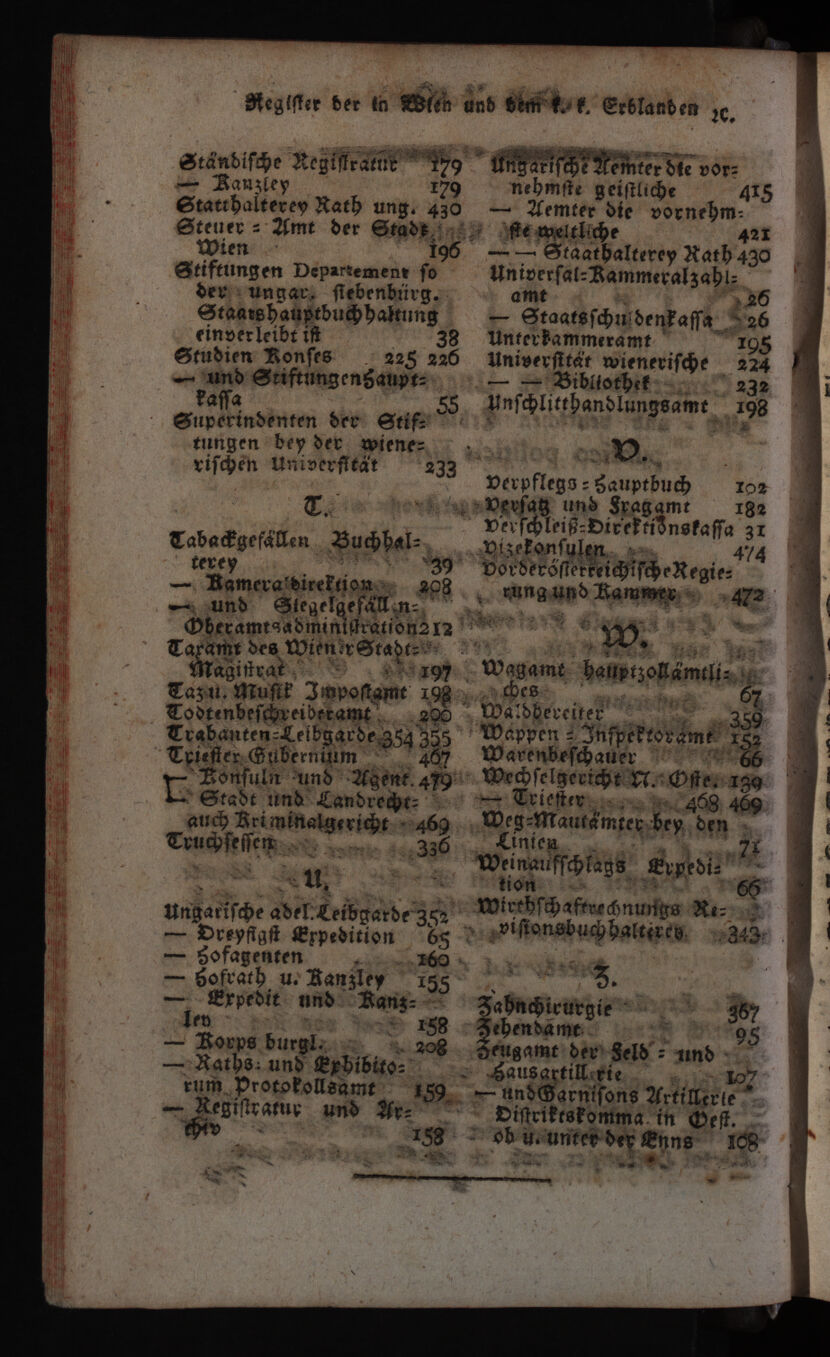 Regiſter der in Wien und dem k. k. Erblanden ꝛc.
Ständiſche Regiſtratur 179
— Kanzley 179
Statthalterey Rath ung. 430
Steuer = Amt der Stadt
Wien 196
Stiftungen Departement ſo
der ungar. ſiebenbürg.
Staatshauptbuchhaltung
einverleibt iſt 38
Studien Konſes 225 226
— und Stiftungenhaupt=
kaſſa 55
Superindenten der Stif=
tungen bey der wiene=
riſchen Univerſität 233
T.
Tabackgefällen Buchhal=
terey 39
— Kameraldirektion 208
— und Siegelgefällen=
Oberamtsadminiſtration 212
Taxamt des Wiener Stadt=
Magiſtrat 197
Tazu. Muſik Impoſtamt 198
Todtenbeſchreiberamt 200
Trabanten=Leibgarde 354 355
Trieſter Gubernium 467
— Konſuln und Agent. 479
— Stadt und Landrecht=
auch Kriminalgericht 469
Truchſeſſen 336
U.
Ungariſche adel. Leibgarde 352
— Dreyſigſt Expedition 65
— Hofagenten 160
— Hofrath u. Kanzley 155
— Expedit und Kanz=
ley 158
— Korps burgl. 208
— Raths= und Exhibito=
rum Protokollsamt 159
— Regiſtratur und Ar=
chiv 158
Ungariſche Aemter die vor=
nehmſte geiſtliche 415
— Aemter die vornehm=
ſte weltliche 421
— — Staathalterey Rath 430
Univerſal=Kammeralzahl=
amt 26
— Staatsſchuldenkaſſa 26
Unterkammeramt 195
Univerſität wieneriſche 224
— — Bibliothek 232
Unſchlitthandlungsamt 198
V.
Verpflegs = Hauptbuch 102
Verſatz und Fragamt 182
Verſchleiß=Direktionskaſſa 31
Vizekonſulen 474
Vorderöſterreichiſche Regie=
rung und Kammer 472
W.
Wagamt hauptzollämtli=
ches 67
Waldbereiter 359
Wappen = Inſpektoramt 152
Warenbeſchauer 66
Wechſelgericht N. Oſte. 139
— Trieſter 468 469
Weg=Mautämter bey den
Linien 71
Weinaufſchlags Expedi=
tion 66
Wirthſchaftrechnungs Re=
viſionsbuchhalterey 343
Z.
Zahnchirurgie 367
Zehendamt 95
Zeugamt der Feld = und
Hausartillerie 107
— und Garniſons Artillerie
Diſtriktskomma. in Oeſt.
ob u. unter der Enns 108